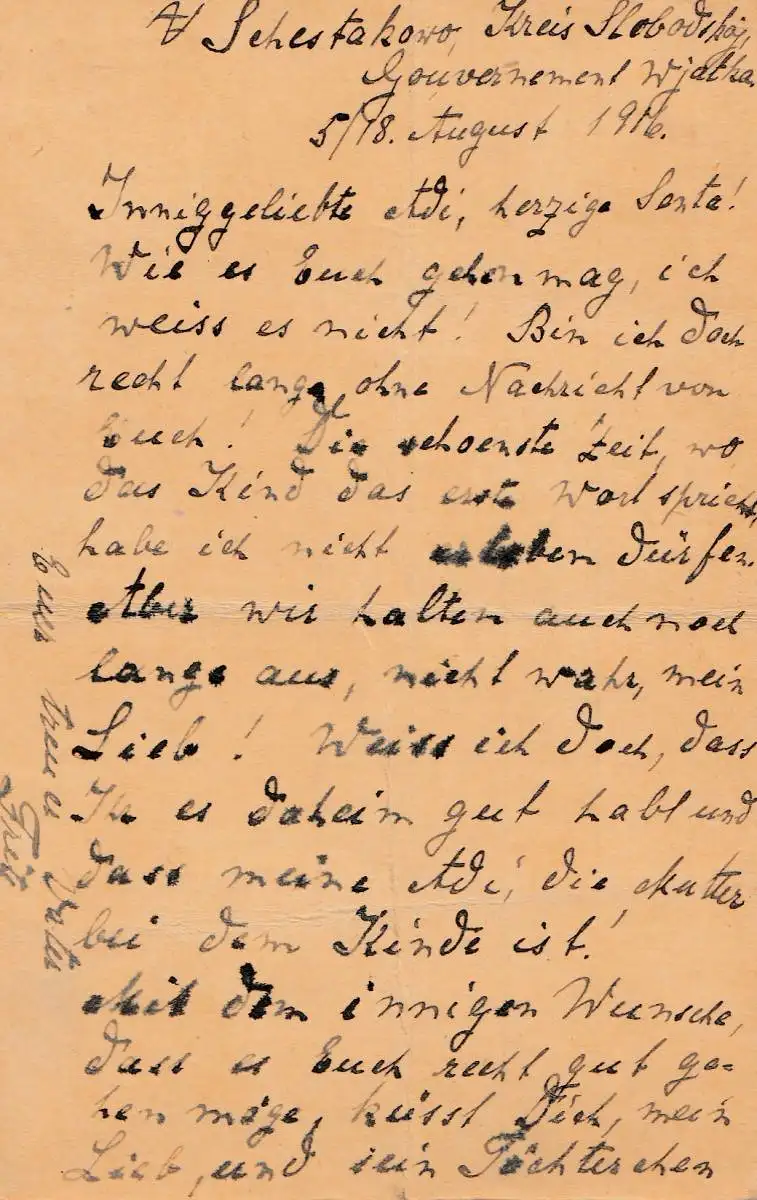 Schestakowo, Kreis Slobodskoj,
Gouvernement Wjatka.
5/18. August 1916.
Inniggeliebte Adi, herzige Senta!
Wie es Euch gehen mag, ich
weiss es nicht! Bin ich doch
recht lange ohne Nachricht von
Euch! Die schoenste Zeit, wo
das Kind das erste Wort spricht,
habe ich nicht erleben dürfen.
Aber wir halten auch noch
lange aus, nicht wahr, mein
Lieb! Weiss ich doch, dass
Ihr es daheim gut habt und
dass meine Adi, die Mutter
bei dem Kinde ist!
Mit dem innigen Wunsche,
dass es Euch recht gut ge-
hen möge, küsst Dich, mein
Lieb, und sein Töchterchen
Euer treuer Vater